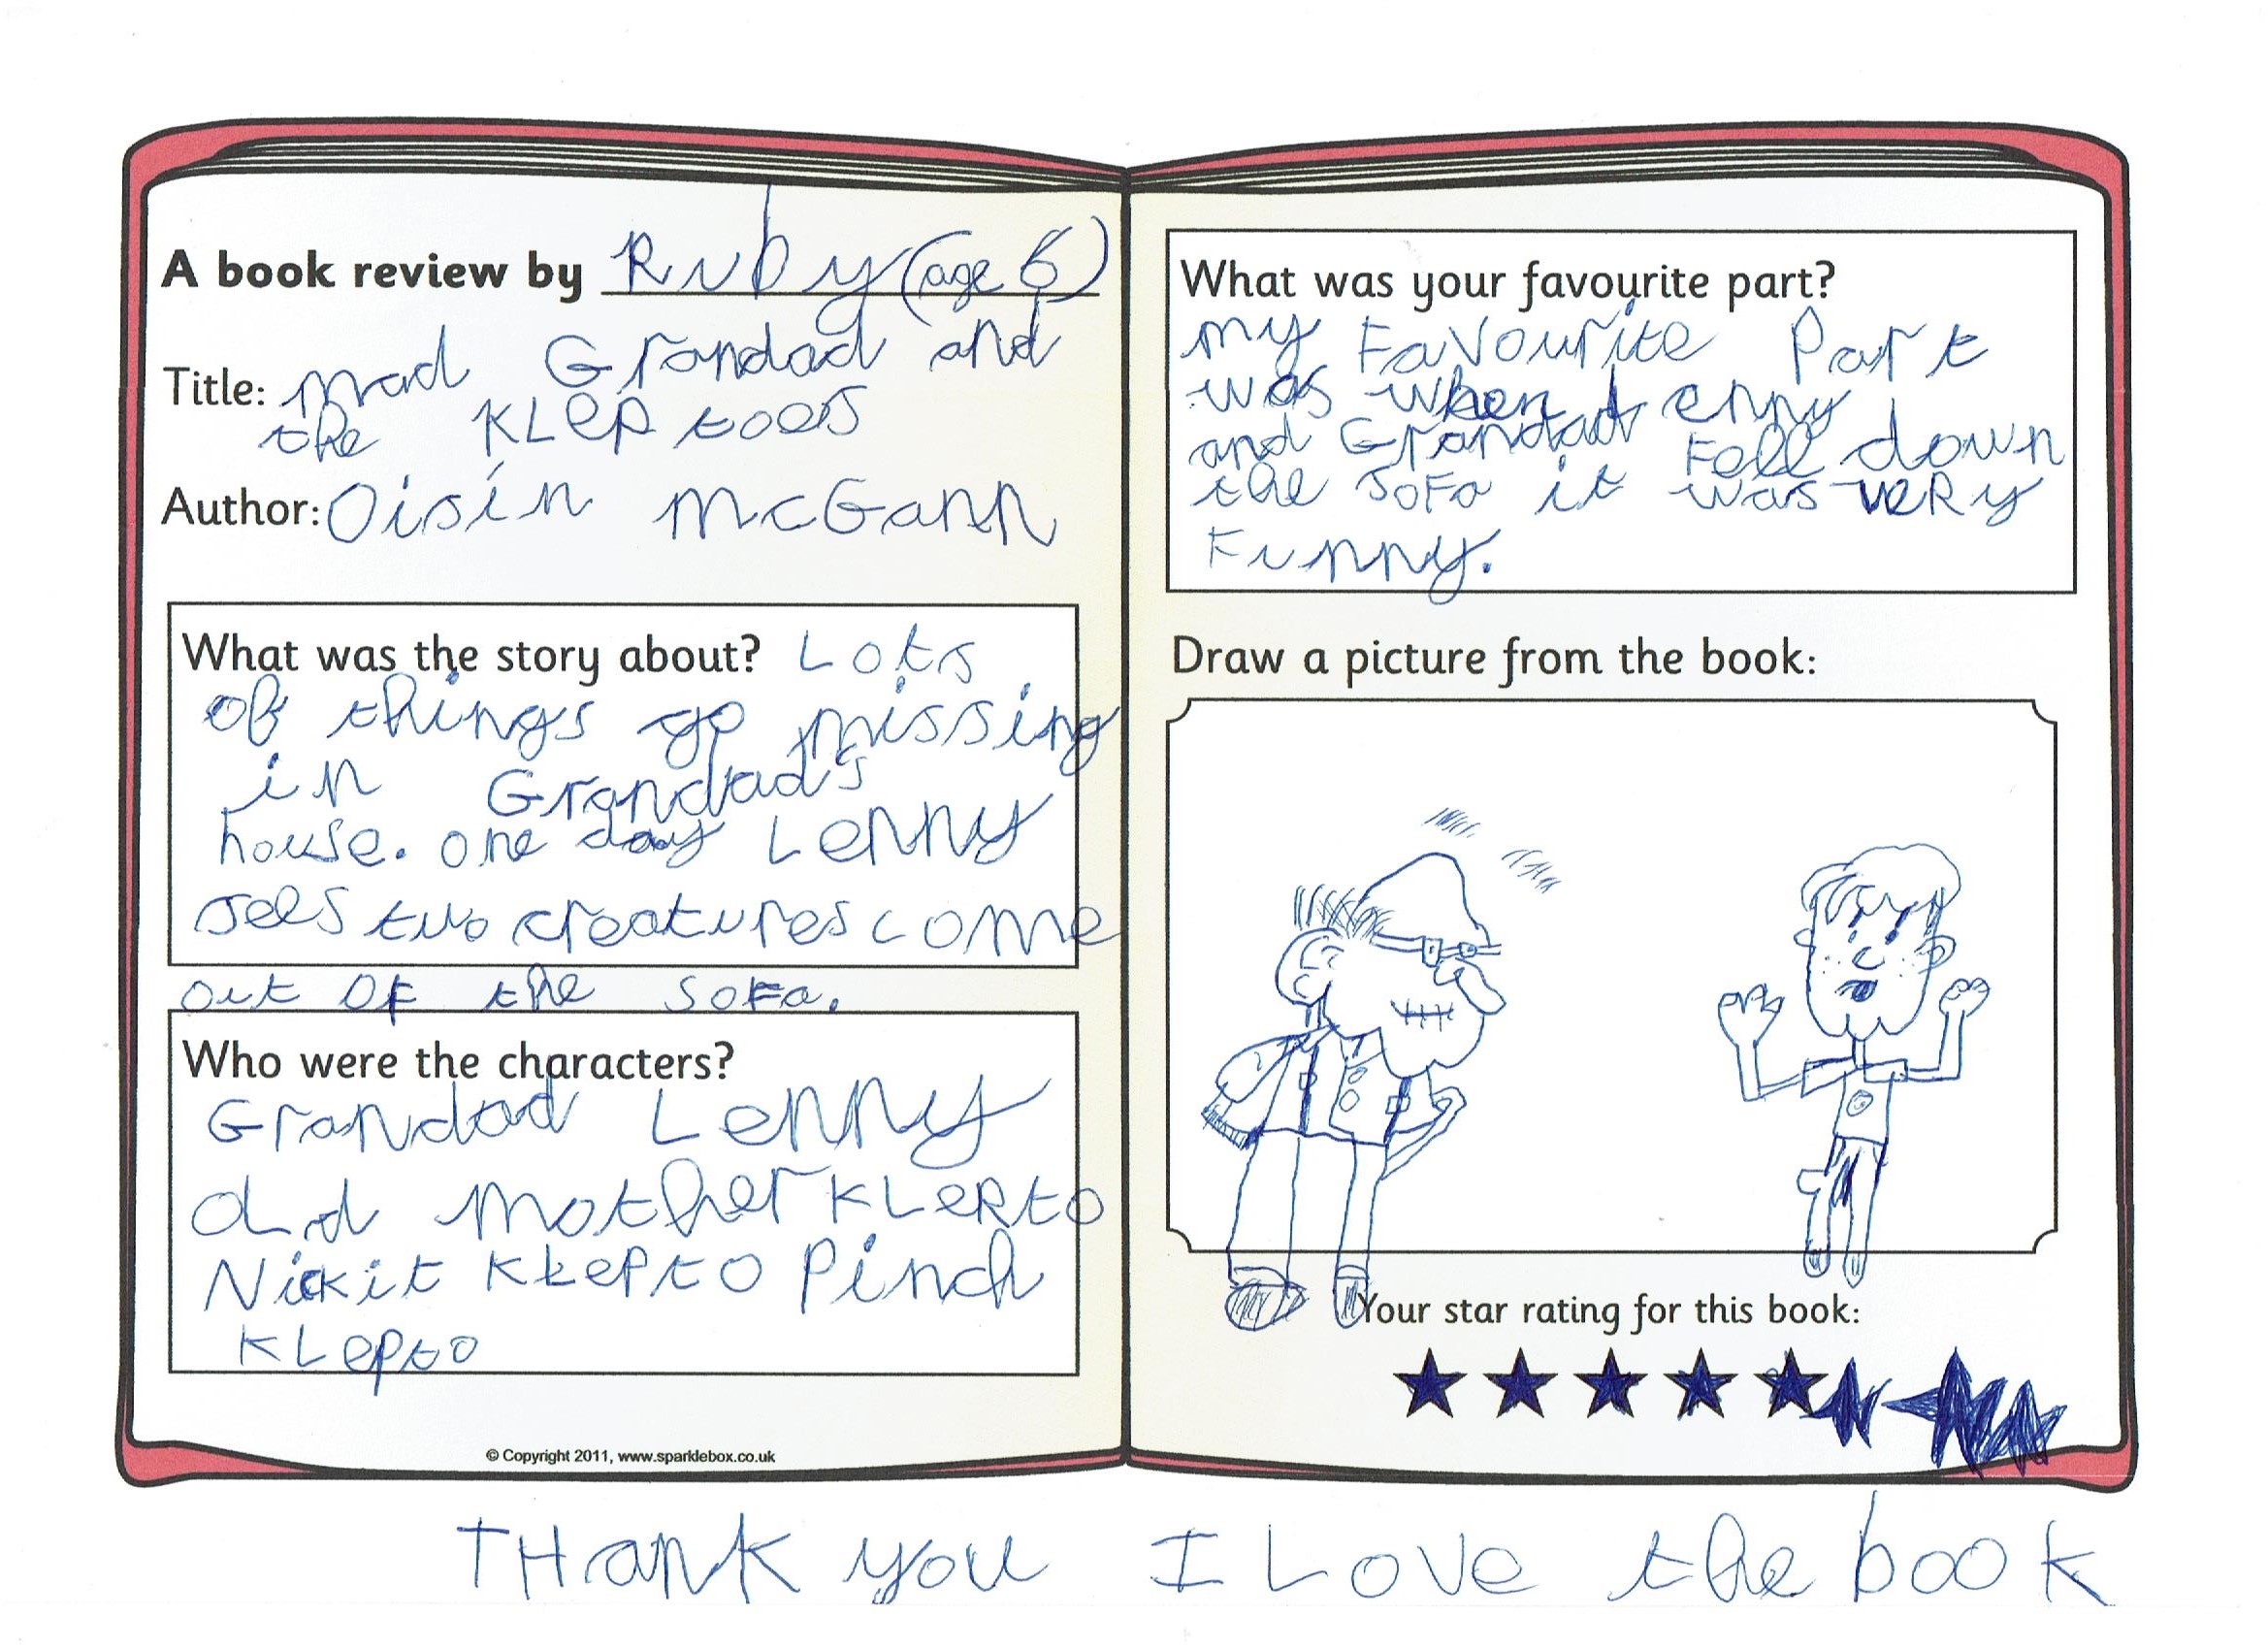 A book review by Ruby (age 6)
Title: mad Grandad and
the KLEPtoes
Author: Oisín McGann
What was the story about? Lots
of things go missing
in Grandad's
house. one day Lenny
sees two creatures come
out of the sofa.
Who were the characters?
Grandad Lenny
old mother KLEPto
Nickit KLEPtO Pinch
KLEpto
What was your favourite part?
my Favourite Part
was when Lenny
and Grandad Fell down
the SoFa it was veRy
Funny.
Draw a picture from the book:
Your star rating for this book:
© Copyright 2011, www.sparklebox.co.uk
THank you I Love the book